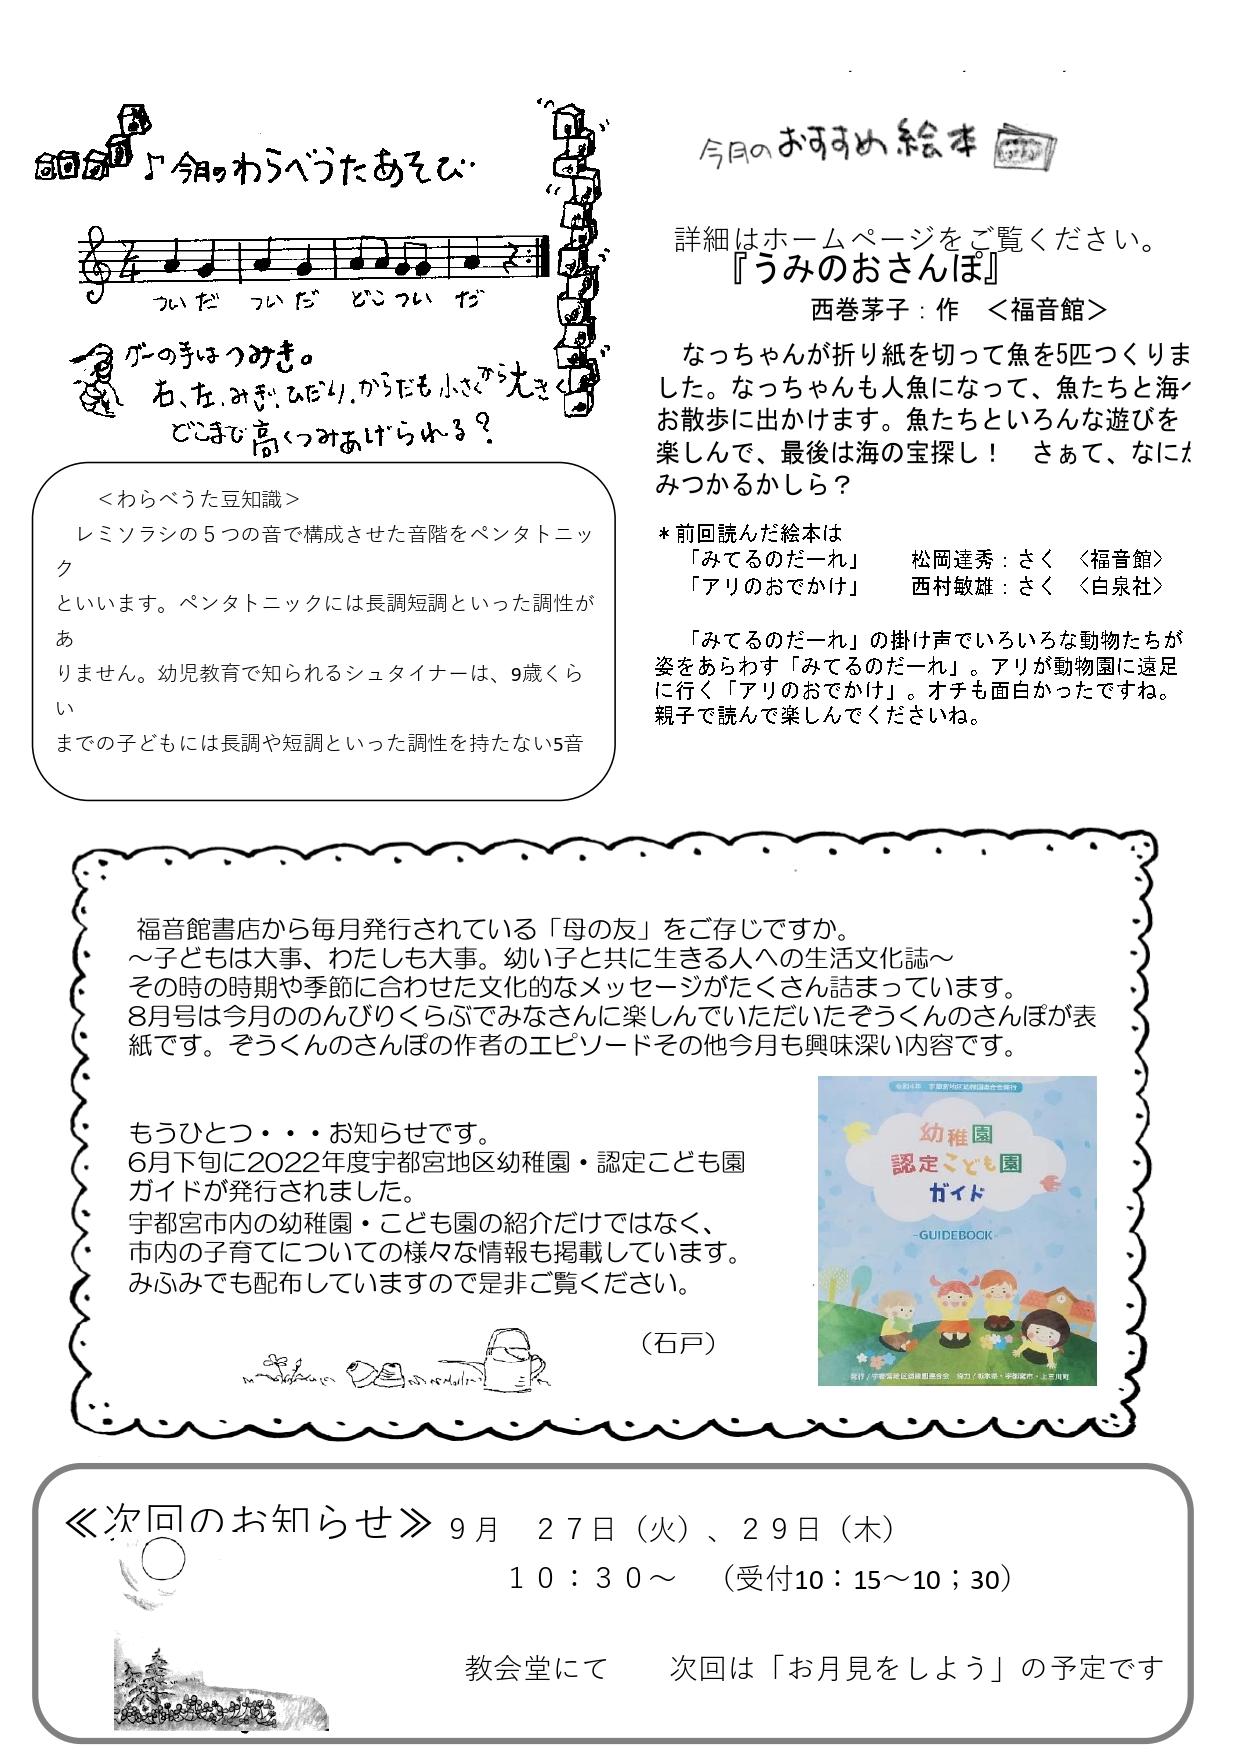 ♪今月のわらべうたあそび
ついだ ついだ どこつい だ
グーの手はつみき。
右、左、みぎ、ひだり、からだも小さくから大きく
どこまで高くつみあげられる？
＜わらべうた豆知識＞
レミソラシの５つの音で構成させた音階をペンタトニッ
ク
といいます。ペンタトニックには長調短調といった調性が
あ
りません。幼児教育で知られるシュタイナーは、9歳くら
い
までの子どもには長調や短調といった調性を持たない5音
今月のおすすめ絵本
詳細はホームページをご覧ください。
『うみのおさんぽ』
西巻茅子：作　＜福音館＞
なっちゃんが折り紙を切って魚を5匹つくりま
した。なっちゃんも人魚になって、魚たちと海へ
お散歩に出かけます。魚たちといろんな遊びを
楽しんで、最後は海の宝探し！　さぁて、なにが
みつかるかしら？
＊前回読んだ絵本は
「みてるのだーれ」　　松岡達秀：さく　〈福音館〉
「アリのおでかけ」　　西村敏雄：さく　〈白泉社〉
「みてるのだーれ」の掛け声でいろいろな動物たちが
姿をあらわす「みてるのだーれ」。アリが動物園に遠足
に行く「アリのおでかけ」。オチも面白かったですね。
親子で読んで楽しんでくださいね。
福音館書店から毎月発行されている「母の友」をご存じですか。
～子どもは大事、わたしも大事。幼い子と共に生きる人への生活文化誌～
その時の時期や季節に合わせた文化的なメッセージがたくさん詰まっています。
8月号は今月ののんびりくらぶでみなさんに楽しんでいただいたぞうくんのさんぽが表
紙です。ぞうくんのさんぽの作者のエピソードその他今月も興味深い内容です。
もうひとつ・・・お知らせです。
6月下旬に2022年度宇都宮地区幼稚園・認定こども園
ガイドが発行されました。
宇都宮市内の幼稚園・こども園の紹介だけではなく、
市内の子育てについての様々な情報も掲載しています。
みふみでも配布していますので是非ご覧ください。
（石戸）
令和4年　宇都宮地区幼稚園連合会発行
幼稚園
認定こども園
ガイド
-GUIDEBOOK-
発行／宇都宮地区幼稚園連合会　協力／栃木県・宇都宮市・上三川町
≪次回のお知らせ≫ ９月　２７日（火）、２９日（木）
１０：３０～　（受付10：15～10；30）
教会堂にて　　次回は「お月見をしよう」の予定です